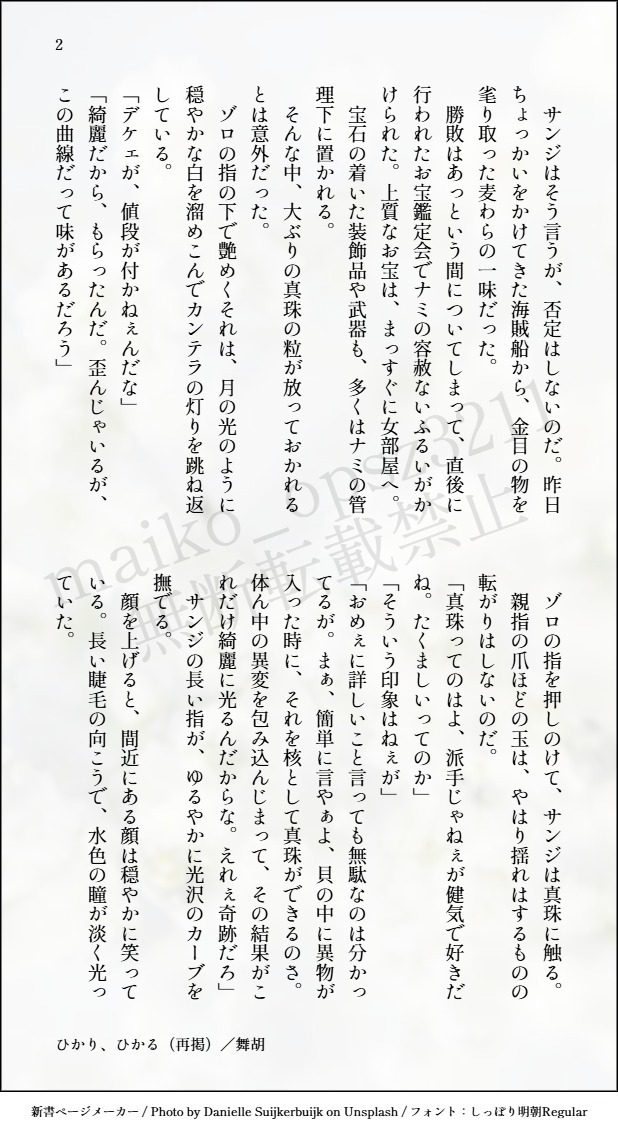 2
サンジはそう言うが、否定はしないのだ。昨日
ちょっかいをかけてきた海賊船から、金目の物を
毟り取った麦わらの一味だった。
勝敗はあっという間についてしまって、直後に
行われたお宝鑑定会でナミの容赦ないふるいがか
けられた。上質なお宝は、まっすぐに女部屋へ。
宝石の着いた装飾品や武器も、多くはナミの管
理下に置かれる。
そんな中、大ぶりの真珠の粒が放っておかれる
とは意外だった。
ゾロの指の下で艶めくそれは、月の光のように
穏やかな白を溜めこんでカンテラの灯りを跳ね返
している。
「デケェが、値段が付かねぇんだな」
「綺麗だから、もらったんだ。歪んじゃいるが、
この曲線だって味があるだろう」
ゾロの指を押しのけて、サンジは真珠に触る。
親指の爪ほどの玉は、やはり揺れはするものの
転がりはしないのだ。
「真珠ってのはよ、派手じゃねぇが健気で好きだ
ね。たくましいってのか」
「そういう印象はねぇが」
「おめぇに詳しいこと言っても無駄なのは分かっ
てるが。まぁ、簡単に言やぁよ、貝の中に異物が
入った時に、それを核として真珠ができるのさ。
体ん中の異変を包み込んじまって、その結果がこ
れだけ綺麗に光るんだからな。えれぇ奇跡だろ」
サンジの長い指が、ゆるやかに光沢のカーブを
撫でる。
顔を上げると、間近にある顔は穏やかに笑って
いる。長い睫毛の向こうで、水色の瞳が淡く光っ
ていた。
maiko_opsz3211
無断転載禁止
ひかり、ひかる（再掲）／舞胡
新書ページメーカー / Photo by Danielle Suijkerbuijk on Unsplash / フォント：しっぽり明朝Regular